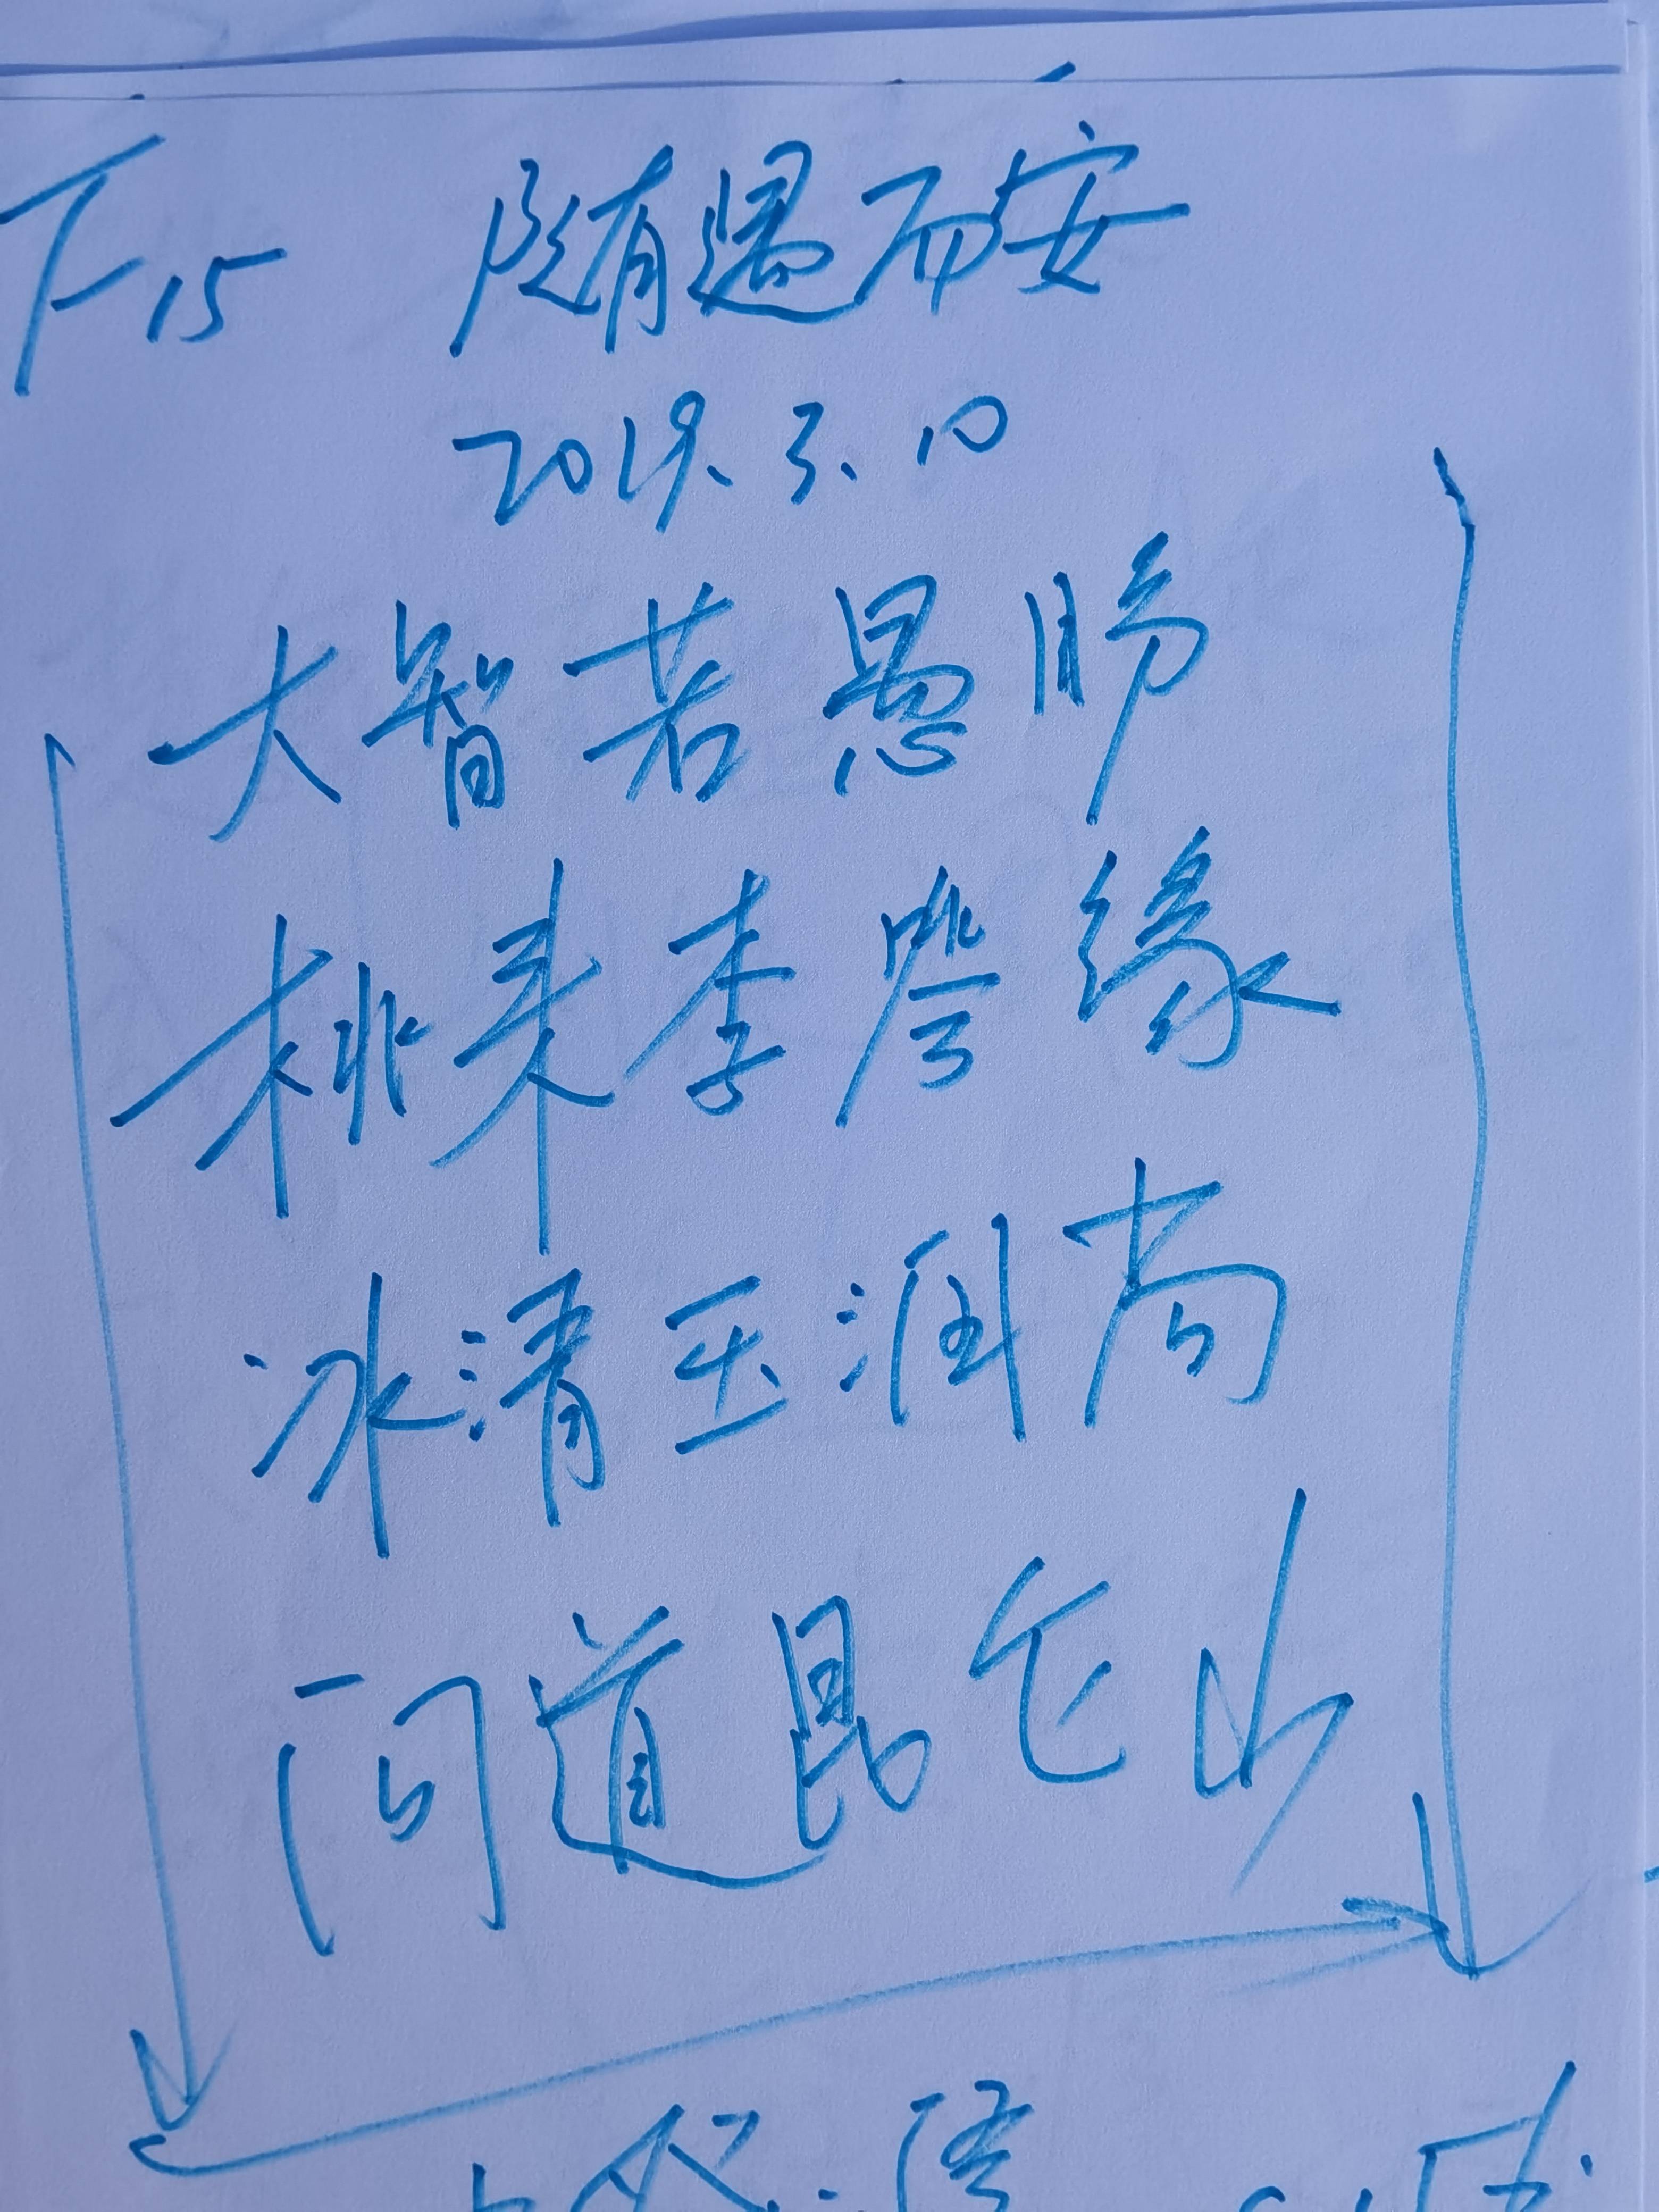 F15 随遇而安
2019.3.10
大智若愚肠
桃来李誉缘
冰清玉润尚
问道昆仑山